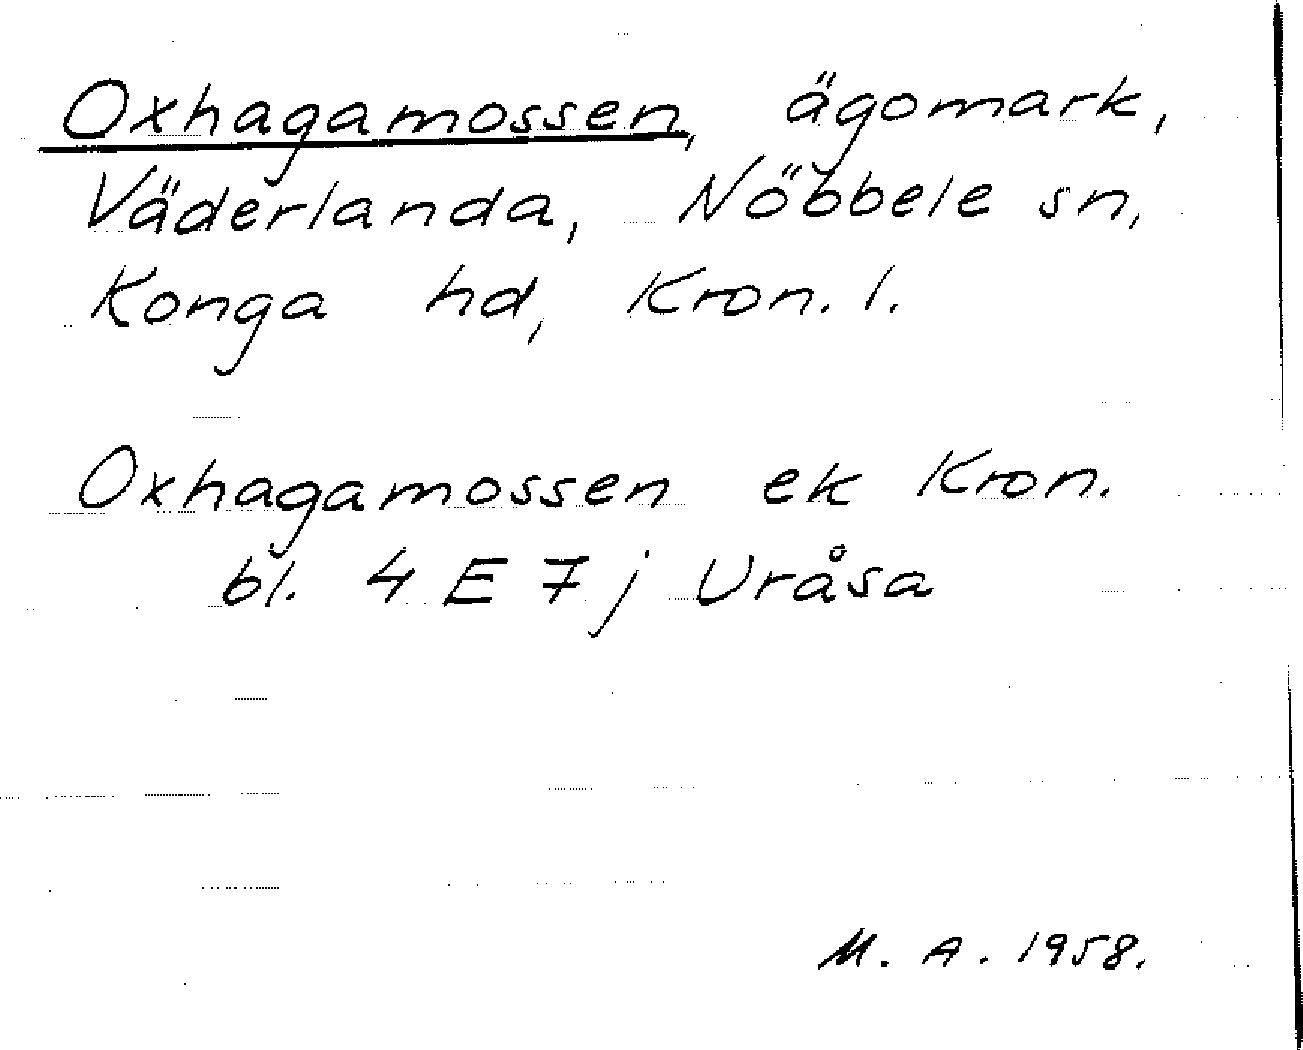 Oxhagamossen, ägomark,
Väderlanda, Nöbbele sn,
Konga hd, Kron. l.
Oxhagamossen ek Kron.
bl. 4 E 7 j Uråsa
M. A. 1958.